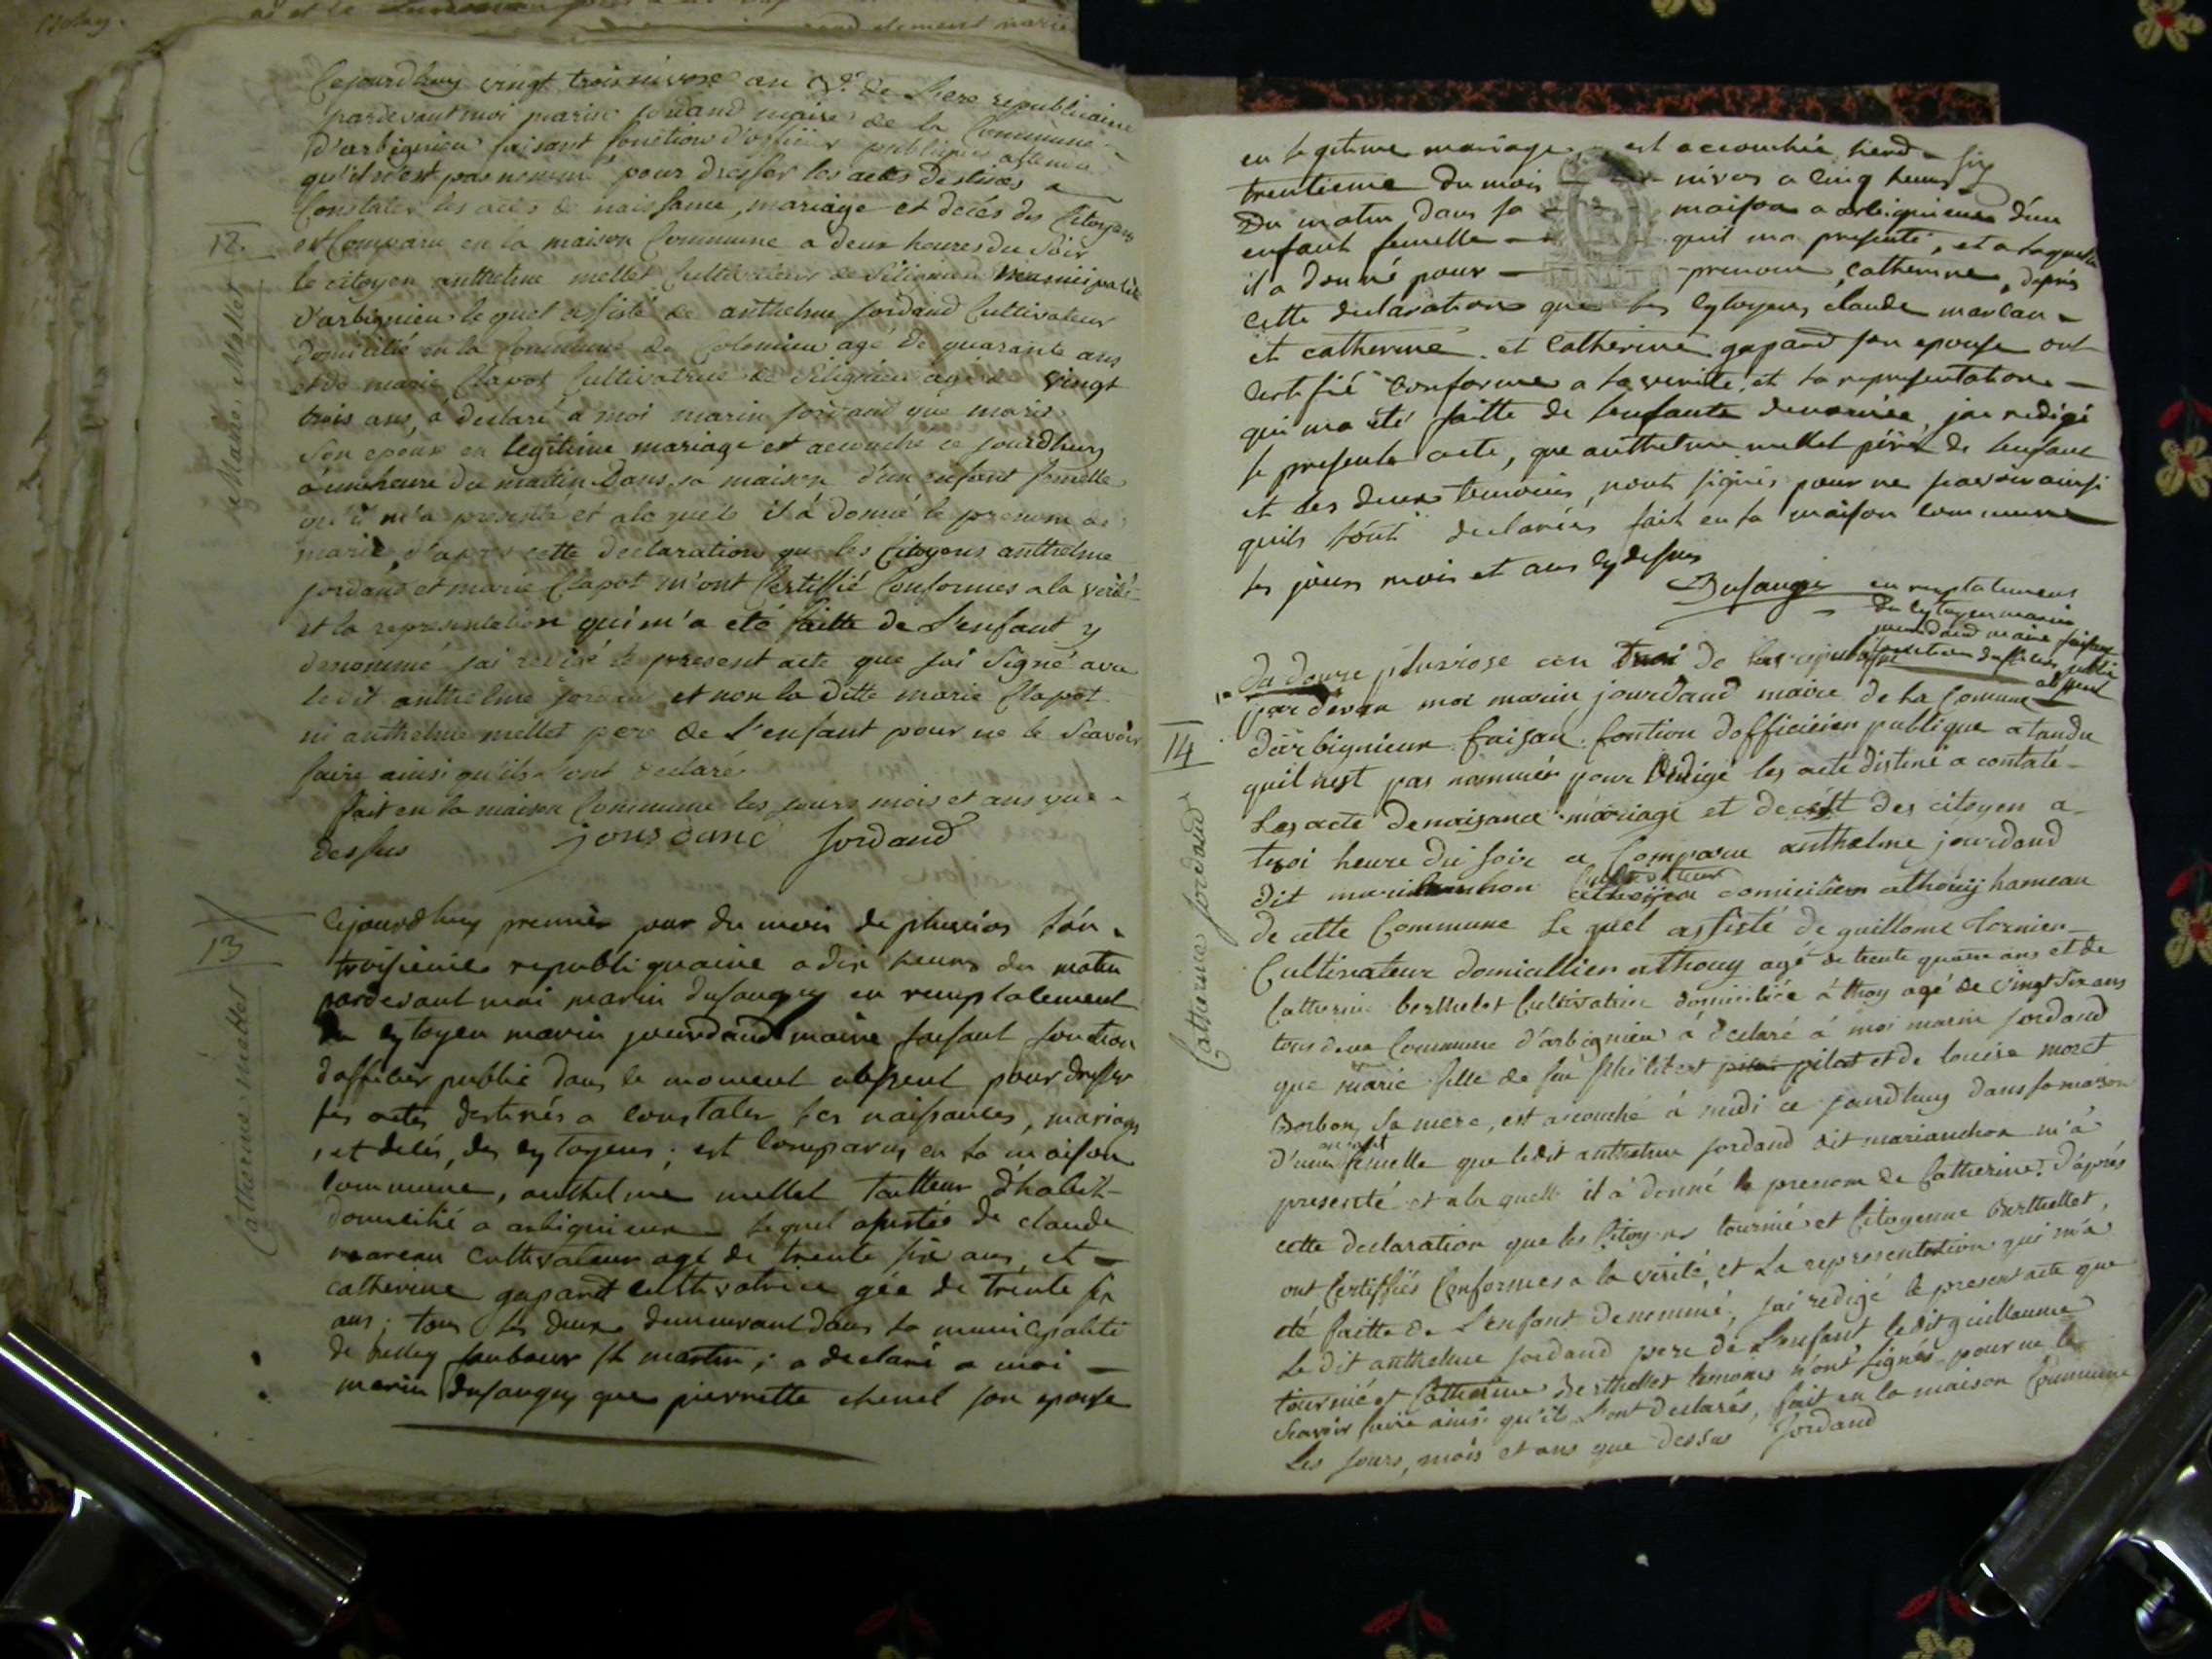 Cejourdhuy vingt trois nivose an 3e. de L'ere republicaine
pardevant moi marin jordand maire de la Commune
d'arbignieu faisant fonction d'officier publique attendu
qu'il n'est pas nommé pour dresser les actes destinés a
Constater les actes de naissance, mariage et decés des Citoyens
12.
est Comparu en la maison Commune a deux heures du Soir
le citoyen anthelme mellet Cultivateur de Sillignieu municipalité
d'arbignieu lequel assisté de anthelme jordand Cultivateur
domicilié en la Commune de Colomieu agé de quarante ans
et de marie Clapot Cultivatrice de Silignieu agée de vingt
trois ans, a declaré a moi marin jordand que marie
Son epouse en legitime mariage est accouché ce jourdhuy
a une heure du matin Dans sa maison d'un enfant femelle
qu'il m'a presenté et a la quele il a donné le prenom de
marie, d'après cette declaration que les Citoyens anthelme
jordand et marie Clapot m'ont Certiffié Conformes a la verité
et la representation qui m'a eté faitte de L'enfant y
denommé jai redigé le present acte que jai Signé avec
ledit anthelme jordand et non la ditte marie Clapot
ni anthelme mellet pere de L'enfant pour ne le Scavoir
faire ainsi qu'ils l'ont declaré
fait en la maison Commune les jours mois et ans que
dessus Jordand
Marie Mellet
13
Cejourdhuy premier jour du mois de pluvios l'an
troisieme republiquaine a dix heures du matin
pardevant moi marin dufaugey en remplacement
du cytoyen marin jourdand maire faisant fonction
d'officier public dans le moment abssent pour dresser
les actes destinés a constater les naissances, mariages
et decés, des cytoyens; est comparus en la maison
commune, anthelme mellet tailleur d'habit
domicilié a arbignieux lequel assistes de claude
marcau cultivateur agé de trente six ans et
catherine gapard cultivatrice gée de trente six
ans; tous les deux demeurant dans la municipalité
de belley faubour st martin; a declaré a moi
marin dufaugey que pierrette chenel son epouse
Catherine mellet
en legitime mariage, est accouchée hierd
trentieme du mois nivos a cinq heures
Du matin dans sa maison a arbignieux d'un
enfant femelle quil ma presenté, et a laquelle
il a donné pour prenom catherine, dapres
cette declaration que les cytoyens claude marcau
et catherine et catherine gapard son epouse ont
certifié conforme a la verité et la representation
qui ma été faitte de lenfante denomée jai redigé
le presente acte, que anthelme mellet père de lenfant
et les deux temoins, nont signés pour ne scavoir ainsi
quils l'ont declarés fait en la maison commune
les jours mois et ans cy dessus
Dufaugey en remplacement
du cytoyen marin
jourdand maire faisant
fonction dofficier public
abssent
Du douze pluviose an troi de la republique
par devan moi marin jourdand maire de la Comune
14
darbignieux faisan fontion dofficier publique atandu
quil nest pas nommer pour Redigé les acte distiné a contaté
Les acte de naisance mariage et decest des citoyen a
troi heure du soir a Comparu anthelme jourdand
dit marianchon Cultivateur domicilier athouy hameau
de cette Commune Le quel assisté de guillome tornier
Cultivateur domicillier athouy agé de trente quatre ans et de
Catherine berthelet Cultivatrice domiciliée à thoy agé de vingt six ans
tous deux Commune d'arbignieu à declaré à moi marin jordand
que marie fille de feu philibert pilot et de louise moret
Borbon, Sa mere, est acouché à midi ce jourdhuy dans sa maison
d'un enfant femelle que ledit anthelme jordand dit marianchon m'a
presenté et a la quelle il a donné le prenom de Catherine. d'après
cette declaration que les Citoyens tournié et Citoyenne Berthellet,
ont Certiffiés Conformes a la verité, et La representation qui m'a
eté faitte de L'enfant denommé, jai redigé le present acte que
Le dit anthelme jordand pere de L'enfant ledit guillaume
tournié et Catherine Berthellet temoins n'ont Signés pour ne le
Scavoir faire ainsi qu'ils L'ont declarés, fait en la maison Commune
Les jours, mois et ans que dessus Jordand
Catherine jordand